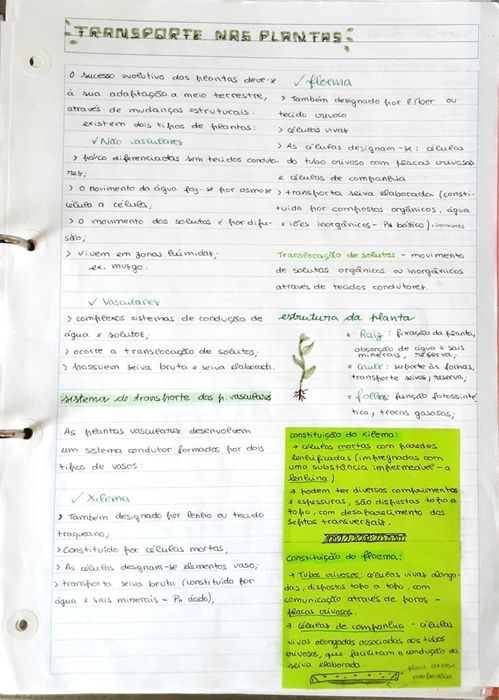 TRANSPORTE NAS PLANTAS
O sucesso evolutivo das plantas deve-se
à sua adaptação a meio terrestre,
através de mudanças estruturais.
existem dois tipos de plantas:
✓ Não vasculares
> pouco diferenciadas sem tecidos conduto-
res;
> O movimento da água faz-se por osmose
célula a célula;
> O movimento dos solutos é por difu-
são;
> vivem em zonas húmidas;
ex. musgo.
✓ Vasculares
> complexos sistemas de condução de
água e solutos;
> ocorre a translocação de solutos;
> possuem seiva bruta e seiva elaborada.
sistema de transporte das p. vasculares
As plantas vasculares desenvolvem
um sistema condutor formados por dois
tipos de vasos:
✓ Xilema
> Também designado por lenho ou tecido
traqueano;
> Constituído por células mortas;
> As células designam-se elementos vaso;
> transporta seiva bruta (constituída por
água e sais minerais - PH ácido),
✓ floema
> Também designado por líber ou
tecido crivoso
> células vivas
> As células designam-se: células
do tubo crivoso com placas crivosas
e células de companhia
> transporta seiva elaborada (consti-
tuída por compostos orgânicos, água
e iões inorgânicos - PH básico) + hormonas
Translocação de solutos - movimento
de solutos orgânicos ou inorgânicos
através de tecidos condutores.
estrutura da planta
Raiz: fixação da planta,
absorção de água e sais
minerais, reserva;
caule: suporte às folhas,
transporte seivas, reserva;
folhas: função fotossinté
tica, trocas gasosas;
constituição do xilema:
→ células mortas com paredes
lenhificadas (impregnadas com
uma substância impermeável - a
lenhina)
→ podem ter diversos comprimentos
e espessuras, são dispostas topo a
topo, com desaparecimento dos
septos transversais.
constituição do floema:
→ Tubos crivosos: células vivas alonga-
das, dispostas topo a topo, com
comunicação através de poros -
placas crivosas.
→ células de companhia - células
vivas alongadas associadas aos tubos
crivosos, que facilitam a condução da
seiva elaborada.
placa crivosa
companhia